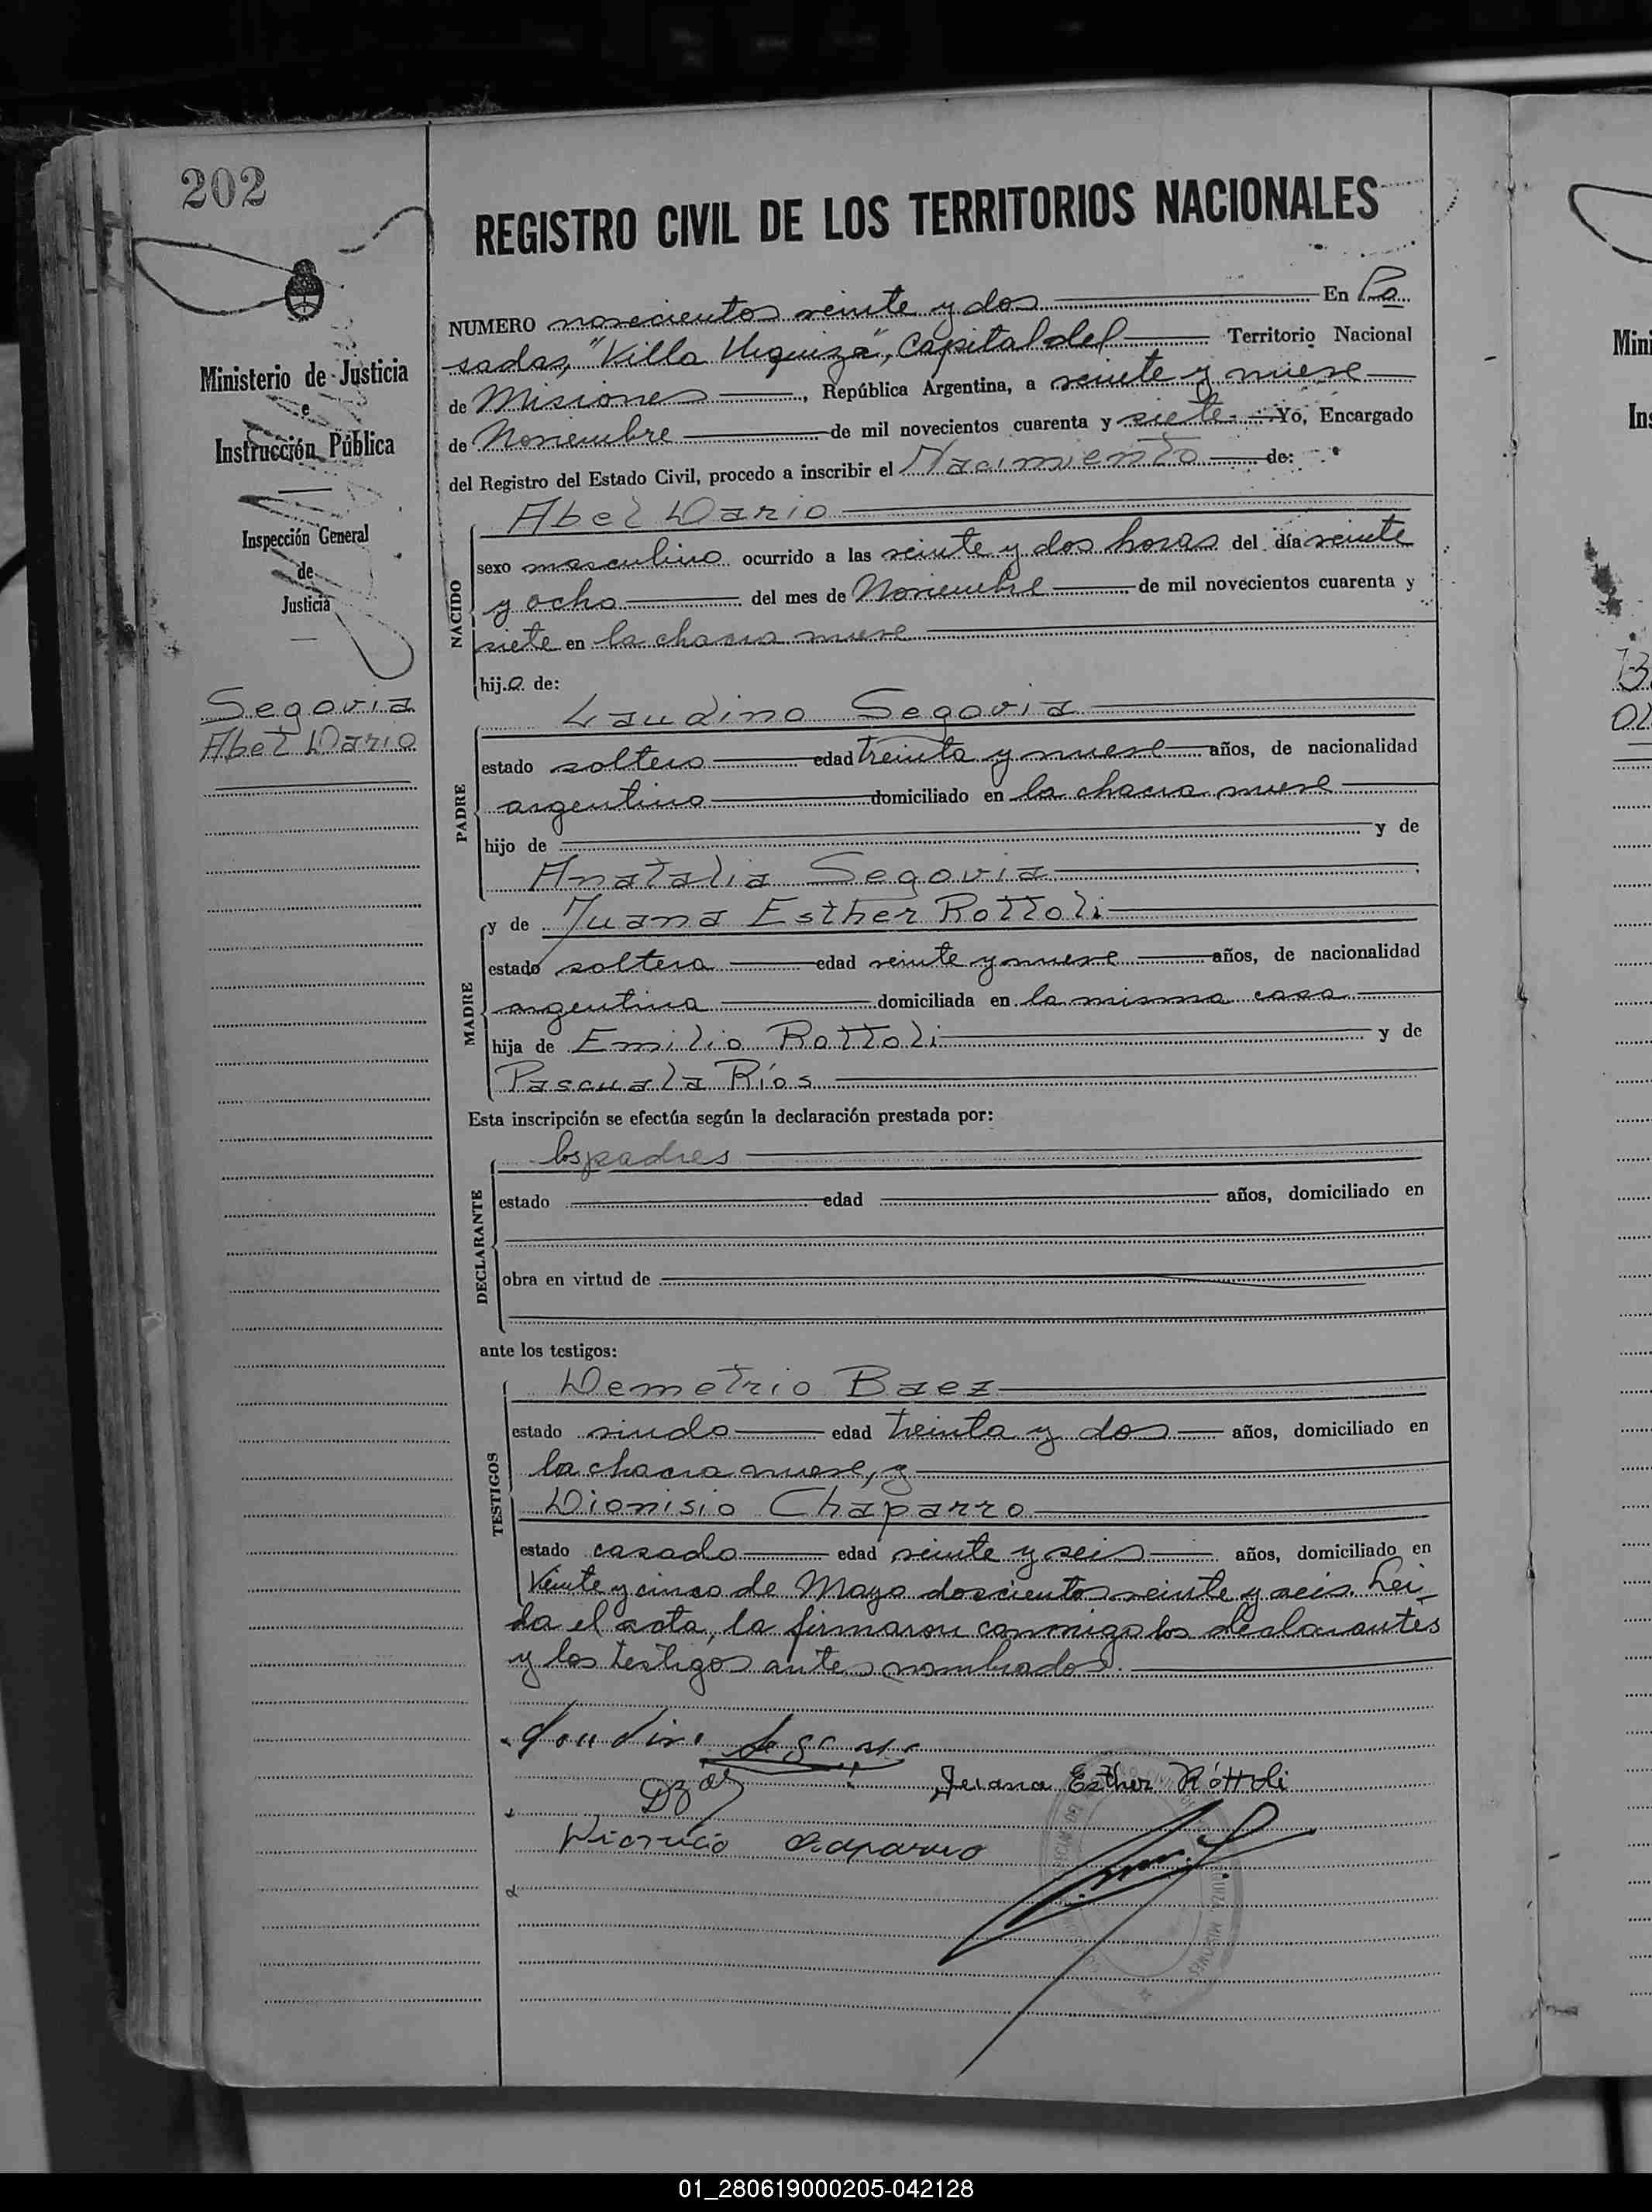 202
REGISTRO CIVIL DE LOS TERRITORIOS NACIONALES
NUMERO novecientos veinte y dos En Po
sadas, "Villa Urquiza", Capital del Territorio Nacional
de Misiones, República Argentina, a veinte y nueve
de Noviembre de mil novecientos cuarenta y siete Yo, Encargado
del Registro del Estado Civil, procedo a inscribir el Nacimiento de:
Ministerio de Justicia
e
Instrucción Pública
Inspección General
de
Justicia
Segovia
Abel Dario
NACIDO
Abel Dario
sexo masculino ocurrido a las veinte y dos horas del día veinte
y ocho del mes de Noviembre de mil novecientos cuarenta y
siete en la chacra nueve
hijo de:
PADRE
Laudino Segovia
estado soltero edad treinta y nueve años, de nacionalidad
argentino domiciliado en la chacra nueve
hijo de y de
Anatalia Segovia
MADRE
y de Juana Esther Rottoli
estado soltera edad veinte y nueve años, de nacionalidad
argentina domiciliada en la misma casa
hija de Emilio Rottoli y de
Pascuala Ríos
Esta inscripción se efectúa según la declaración prestada por:
DECLARANTE
los padres
estado edad años, domiciliado en
obra en virtud de
ante los testigos:
TESTIGOS
Demetrio Baez
estado viudo edad treinta y dos años, domiciliado en
la chacra nueve, y
Dionisio Chaparro
estado casado edad veinte y seis años, domiciliado en
Veinte y cinco de Mayo doscientos veinte y seis. Lei-
da el acta, la firmaron conmigo los declarantes
y los testigos antes nombrados.
Juana Esther Róttoli
MISIONES
01_280619000205-042128